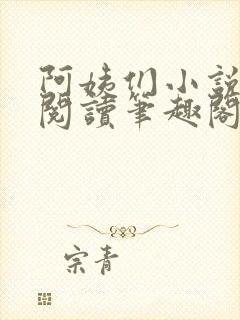 阿姨们小說
閱讀筆趣閣
宗青